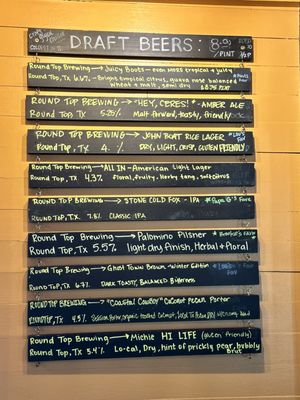 DRAFT BEERS:
PINT
Round Top Brewing → Juicy Boots - even more tropical & juicy
Round Top, TX 6.6% - Bright tropical citrus, guava nose balanced
wheat + malt, semi dry
ROUND TOP BREWING → "HEY, CERES!" - AMBER ALE
Round Top TX 5.25% Malt forward, toasty, friendly
ROUND TOP BREWING → JOHN BOAT RICE LAGER
Round Top, TX 4. % DRY, LIGHT, CRISP, GLUTEN FRIENDLY
Round Top Brewing → ALL IN - American Light Lager
Round Top, TX 4.3% floral, fruity, Herby tang, soft citrus
ROUND TOP BREWING → STONE COLD FOX - IPA
ROUND TOP, TX 7.8% CLASSIC IPA
Round Top Brewing → Palomino Pilsner
Round Top, TX 5.5% light dry finish, Herbal & floral
Round Top Brewing → Ghost Town Brown - Winter Edition
Round Top, TX 6.7% DARK TOASTY, BALANCED BITTERNESS
ROUND TOP BREWING → "Coastal Cowboy" Coconut Pecan Porter
Round Top, TX
Round Top Brewing → Michie HI LIFE (gluten friendly)
Round Top, TX 5.4% Local, Dry, hint of prickly pear, bubbly
Brut